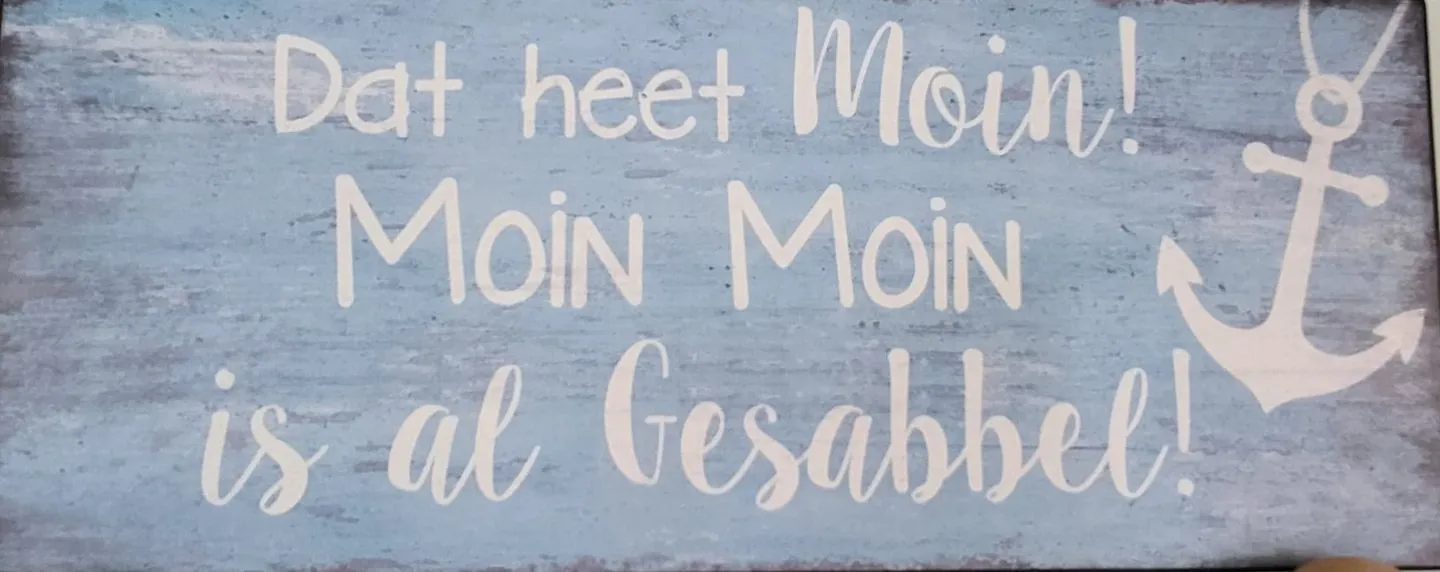 Dat heet Moin!
Moin Moin
is al Gesabbel!